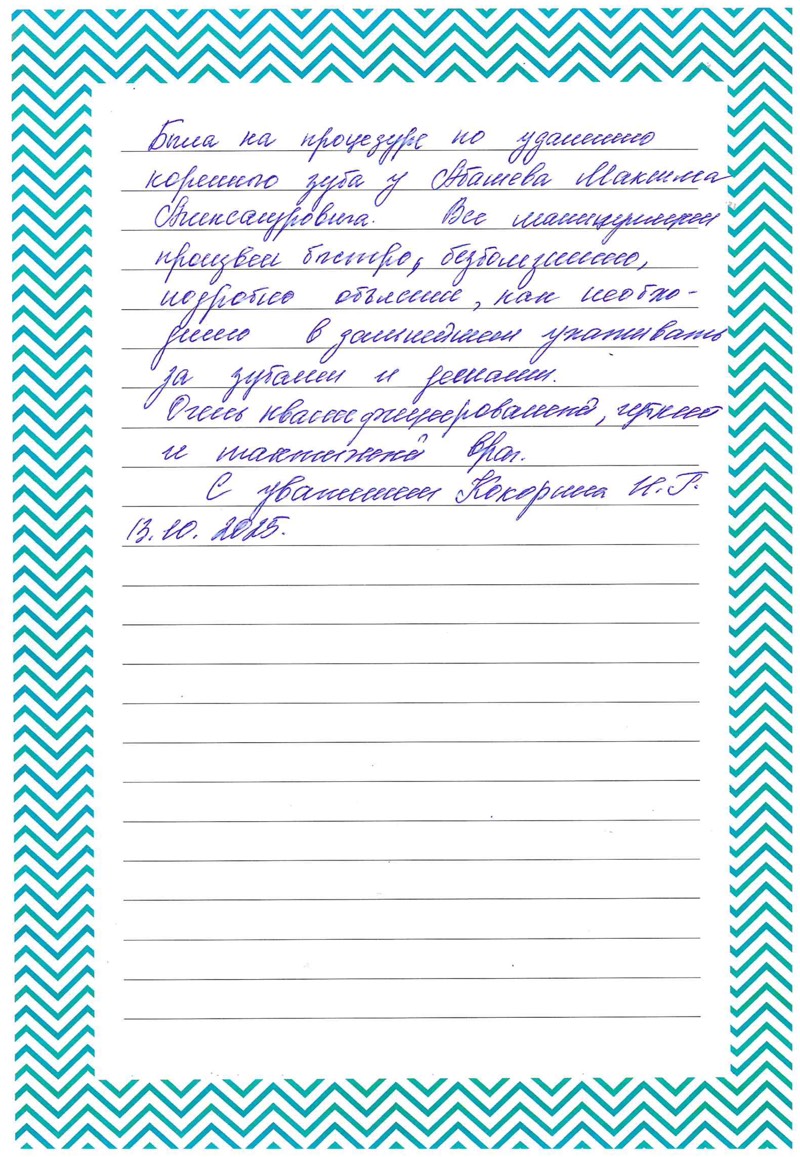 Была на процедуре по удалению
коренного зуба у Абашева Максима
Александровича. Все манипуляции
произвел быстро, безболезненно,
подробно объяснил, как необхо-
димо в дальнейшем ухаживать
за зубами и деснами.
Очень квалифицированный, чуткий
и тактичный врач.
С уважением Кокорина Н.Г.
13.10.2025.